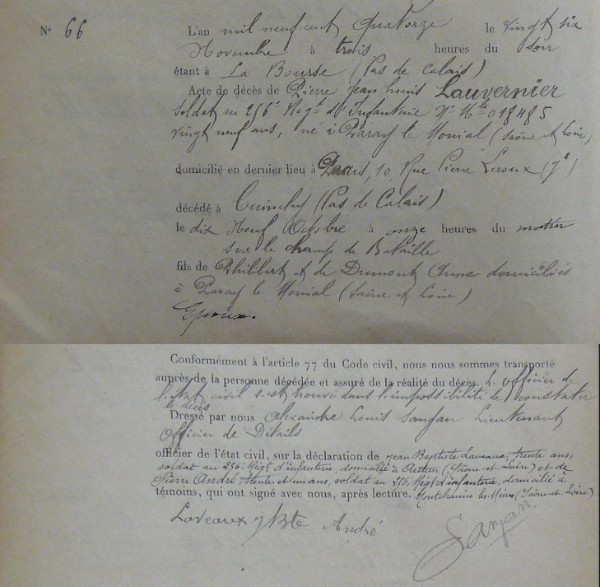 N° 66
L'an mil neuf cent quatorze le vingt six
Novembre à trois heures du soir
étant à La Bourse (Pas de Calais)
Acte de décès de Pierre Jean Louis Lauvernier
Soldat au 256e Régt d'Infanterie N° Mle 018485
vingt neuf ans, né à Paray le Monial (Saône et Loire)
domicilié en dernier lieu à Paris, 10, Rue Pierre Leroux (7e)
décédé à Cuinchy (Pas de Calais)
le dix Neuf Octobre à onze heures du matin
sur le champ de Bataille
fils de Philibert et de Dumont Anne domiciliés
à Paray le Monial (Saône et Loire)
Epoux.
Conformément à l'article 77 du Code civil, nous nous sommes transporté
auprès de la personne décédée et assuré de la réalité du décès. L'officier de
l'état civil s'est trouvé dans l'impossibilité de constater
le décès
Dressé par nous Alexandre Louis Sanjan Lieutenant
Officier de Détails
officier de l'état civil, sur la déclaration de Jean Baptiste Laveaux, trente ans,
soldat au 256e Régt d'infanterie, domicilié à (Saône-et-Loire) et de
Pierre André trente et un ans, soldat au 256e Régt d'infanterie, domicilié à
témoins, qui ont signé avec nous, après lecture. Montchanin les Mines (Saône-et-Loire)
Laveaux J Bte André
Sanjan